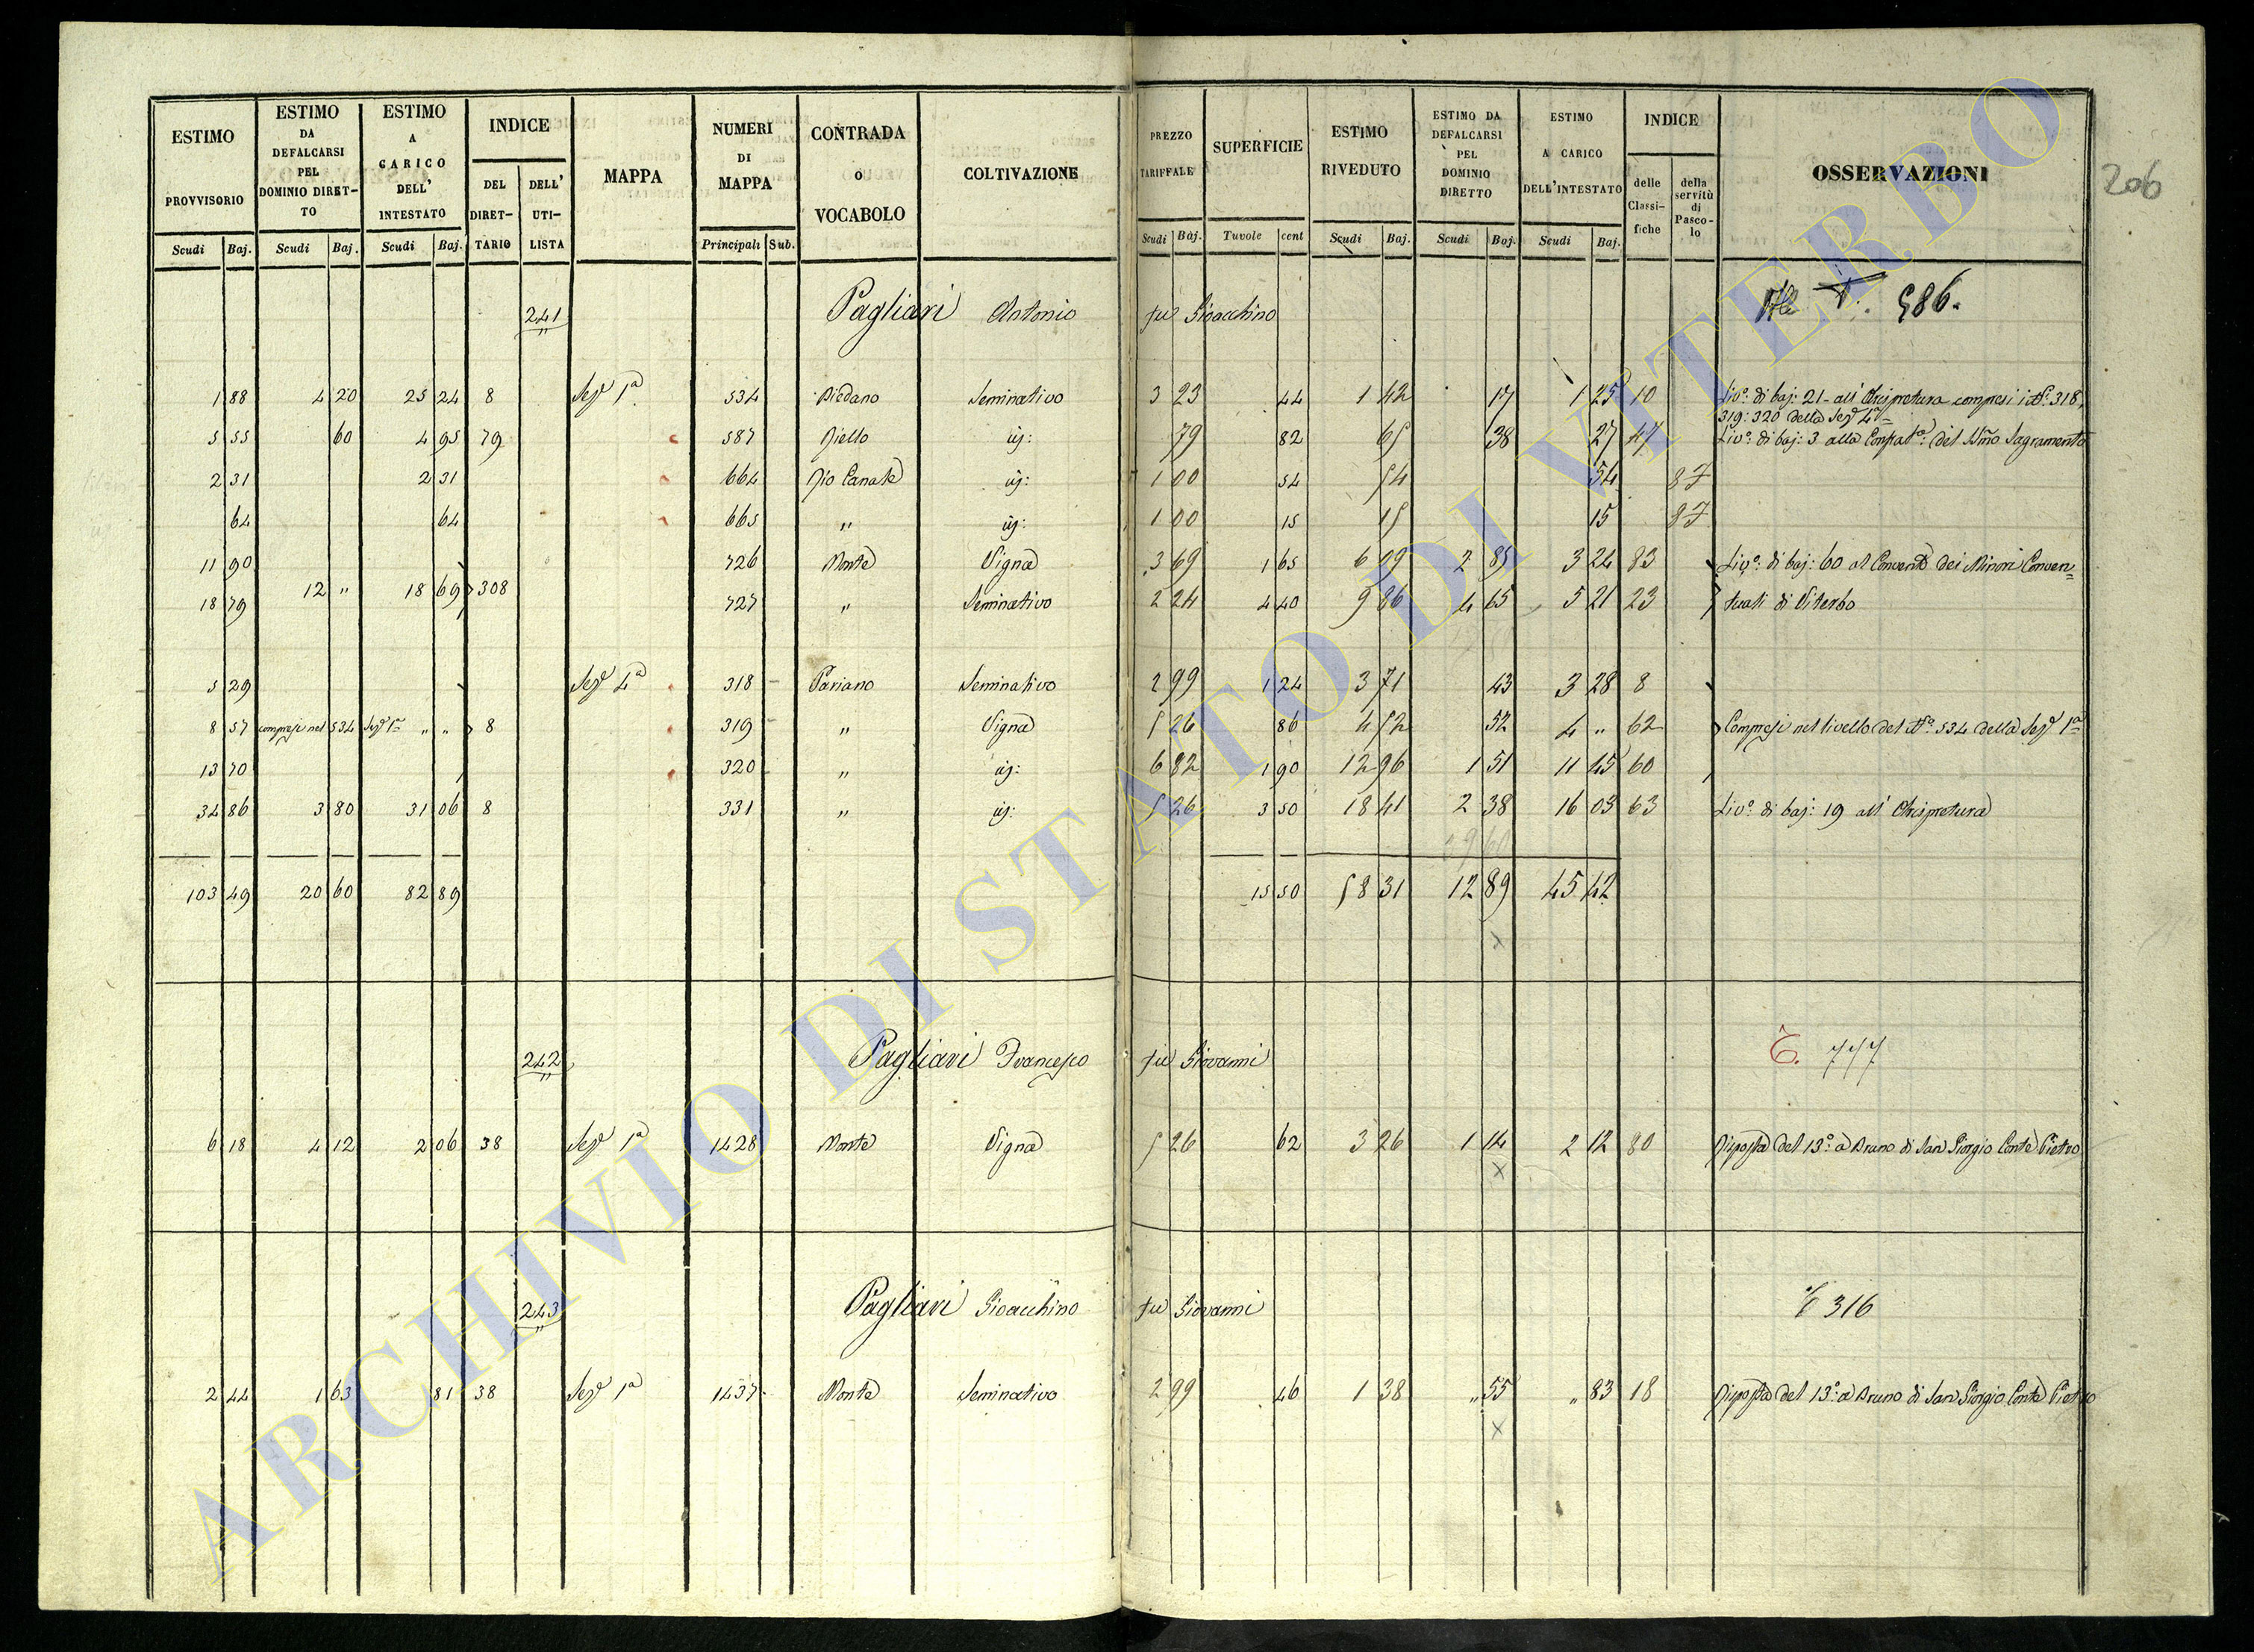 206
ESTIMO PROVVISORIO ESTIMO DA DEFALCARSI PEL DOMINIO DIRET-TO ESTIMO A CARICO DELL' INTESTATO INDICE DEL DIRET-TARIO DELL' UTI-LISTA MAPPA NUMERI DI MAPPA CONTRADA o VOCABOLO COLTIVAZIONE PREZZO TARIFFALE SUPERFICIE ESTIMO RIVEDUTO ESTIMO DA DEFALCARSI PEL DOMINIO DIRETTO ESTIMO A CARICO DELL'INTESTATO INDICE delle Classi-fiche della servitù di Pasco-lo OSSERVAZIONI
Scudi Baj. Scudi Baj. Scudi Baj. Principali Sub. Scudi Baj. Tavole cent Scudi Baj. Scudi Baj. Scudi Baj.
241 Pagliari Antonio fu Gioacchino 986.
1 88 4 20 25 24 8 Sezе 1a 534 Piedano Seminativo 3 23 44 1 42 17 1 25 10 Livo: di baj: 21 all' Arcipretura compresi i No: 318,
319: 320 della Seze 4a
5 55 60 4 95 79 587 Riello id: 79 82 65 38 27 47 Livo: di baj: 3 alla Confrata: del SSmo Sagramento
2 31 2 31 664 Rio Canale id: 1 00 54 54 54 87
64 64 665 " id: 1 00 15 15 15 87
11 90 726 Monte Vigna 3 69 1 65 6 09 2 85 3 24 83 Livo: di baj: 60 al Convento dei Minori Conven=
12 " 18 69 308
18 79 727 " Seminativo 2 24 4 40 9 86 4 65 5 21 23 tuali di Viterbo
5 29 Seze 4a 318 Pariano Seminativo 2 99 1 24 3 71 43 3 28 8
8 57 compresi nel 534 Seze 1a " " 8 319 " Vigna 5 26 86 4 52 52 4 " 62 Compresi nel livello del No: 534 della Seze 1a
13 70 320 " id: 6 82 1 90 12 96 1 51 11 45 60
34 86 3 80 31 06 8 331 " id: 5 26 3 50 18 41 2 38 16 03 63 Livo: di baj: 19 all' Arcipretura
103 49 20 60 82 89 15 50 58 31 12 89 45 42
x
242 Pagliari Francesco fu Giovanni 777
6 18 4 12 2 06 38 Seze 1a 1428 Monte Vigna 5 26 62 3 26 1 14 2 12 80 Risposta del 13o: a Bruno di San Giorgio Conte Pietro
x
243 Pagliari Gioacchino fu Giovanni 316
2 44 1 63 81 38 Seze 1a 1437 Monte Seminativo 2 99 46 1 38 " 55 " 83 18 Risposta del 13o: a Bruno di San Giorgio Conte Pietro
x
ARCHIVIO DI STATO DI VITERBO